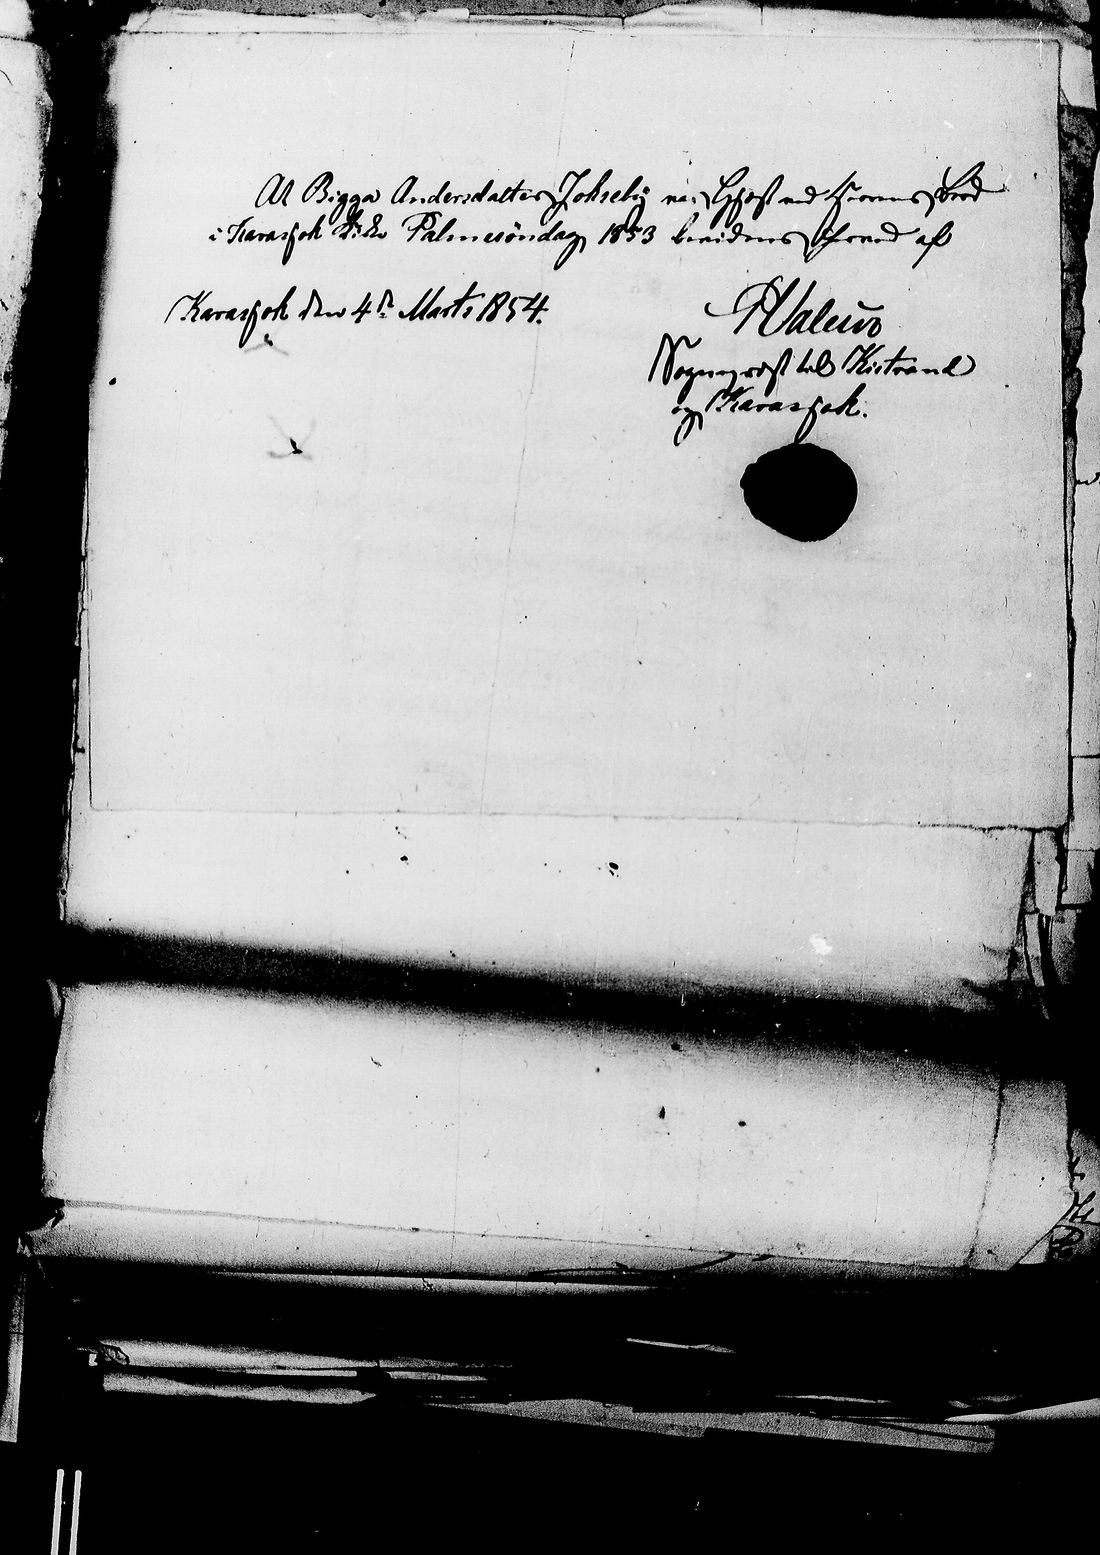 At Bigga Andersdatter Jokseby var Gjæst ved Herrens Bord
i Karasjok Kirke Palmesöndag 1853 bevidnes herved af
Karasjok den 4de Marts 1854.
Sognepræst til Kistrand
og Karasjok.